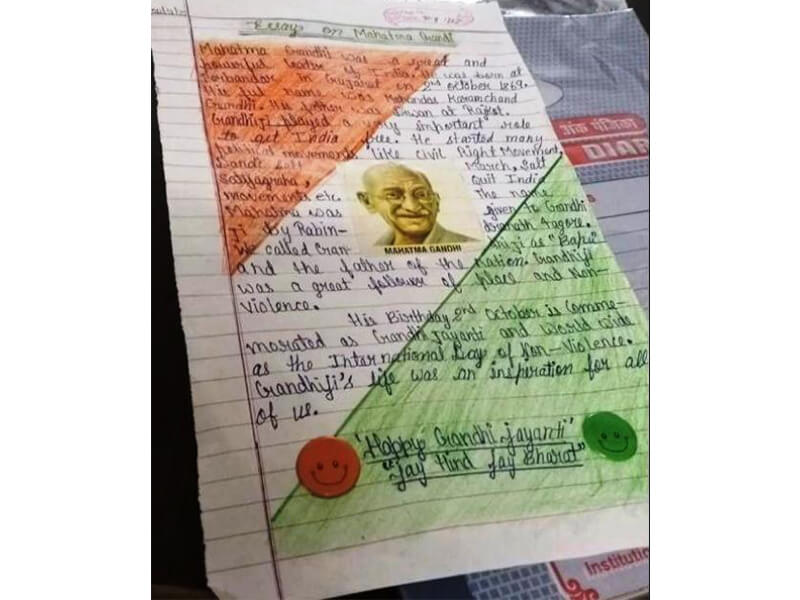 Essay on Mahatma Gandhi
Mahatma Gandhi was a great and
powerful leader of India. He was born at
Porbandar in Gujarat on 2nd October 1869.
His full name was Mohandas Karamchand
Gandhi. His father was Diwan at Rajkot.
Gandhiji played a very important role
to get India free. He started many
political movements like civil Right Movement,
Dandi salt March, Salt
Satyagraha, Quit India
movements etc. The name
Mahatma was given to Gandhi
Ji by Rabin- dranath Tagore.
We called Gan- dhiji as "Bapu"
MAHATMA GANDHI
and the father of the nation. Gandhiji
was a great follower of place and Non-
Violence.
His Birthday 2nd October is Comme-
morated as Gandhi Jayanti and World wide
as the International Day of Non-Violence.
Gandhiji's life was an inspiration for all
of us.
'Happy Gandhi Jayanti'
"Jay Hind Jay Bharat"
अंक पंजिका
DIAR
Institution